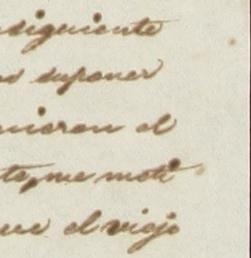 siguiente
suponer
nieron el
ta, me moti
ue el viejo